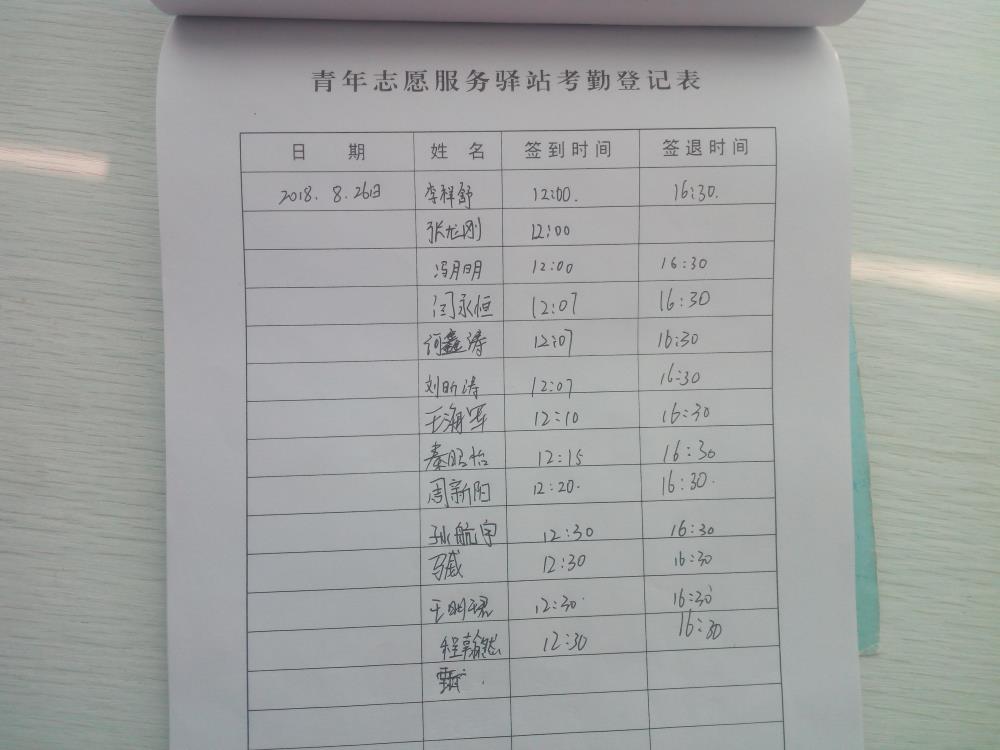 青年志愿服务驿站考勤登记表
日 期 姓 名 签到时间 签退时间
2018. 8. 26日 李祥舒 12:00. 16:30.
张龙刚 12:00
冯月明 12:00 16:30
闫永恒 12:07 16:30
何鑫涛 12:07 16:30
刘昕涛 12:07 16:30
王海军 12:10 16:30
秦昭怡 12:15 16:30
周新阳 12:20. 16:30.
孙航宇 12:30 16:30
马威 12:30 16:30
王明 12:30 16:30
程翰然 12:30 16:30